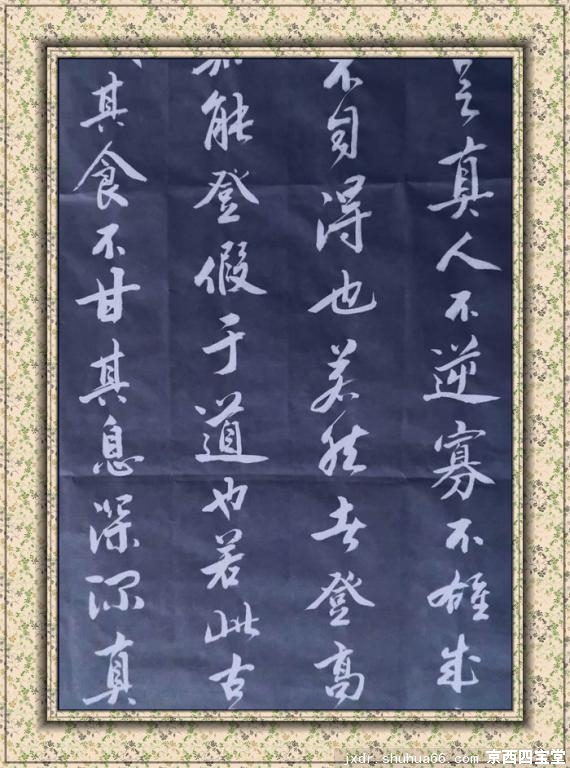 之真人不逆寡不雄成
不自得也若然者登高
能登假于道也若此古
其食不甘其息深深真
jxdr.shuhua66.com 京西四宝堂